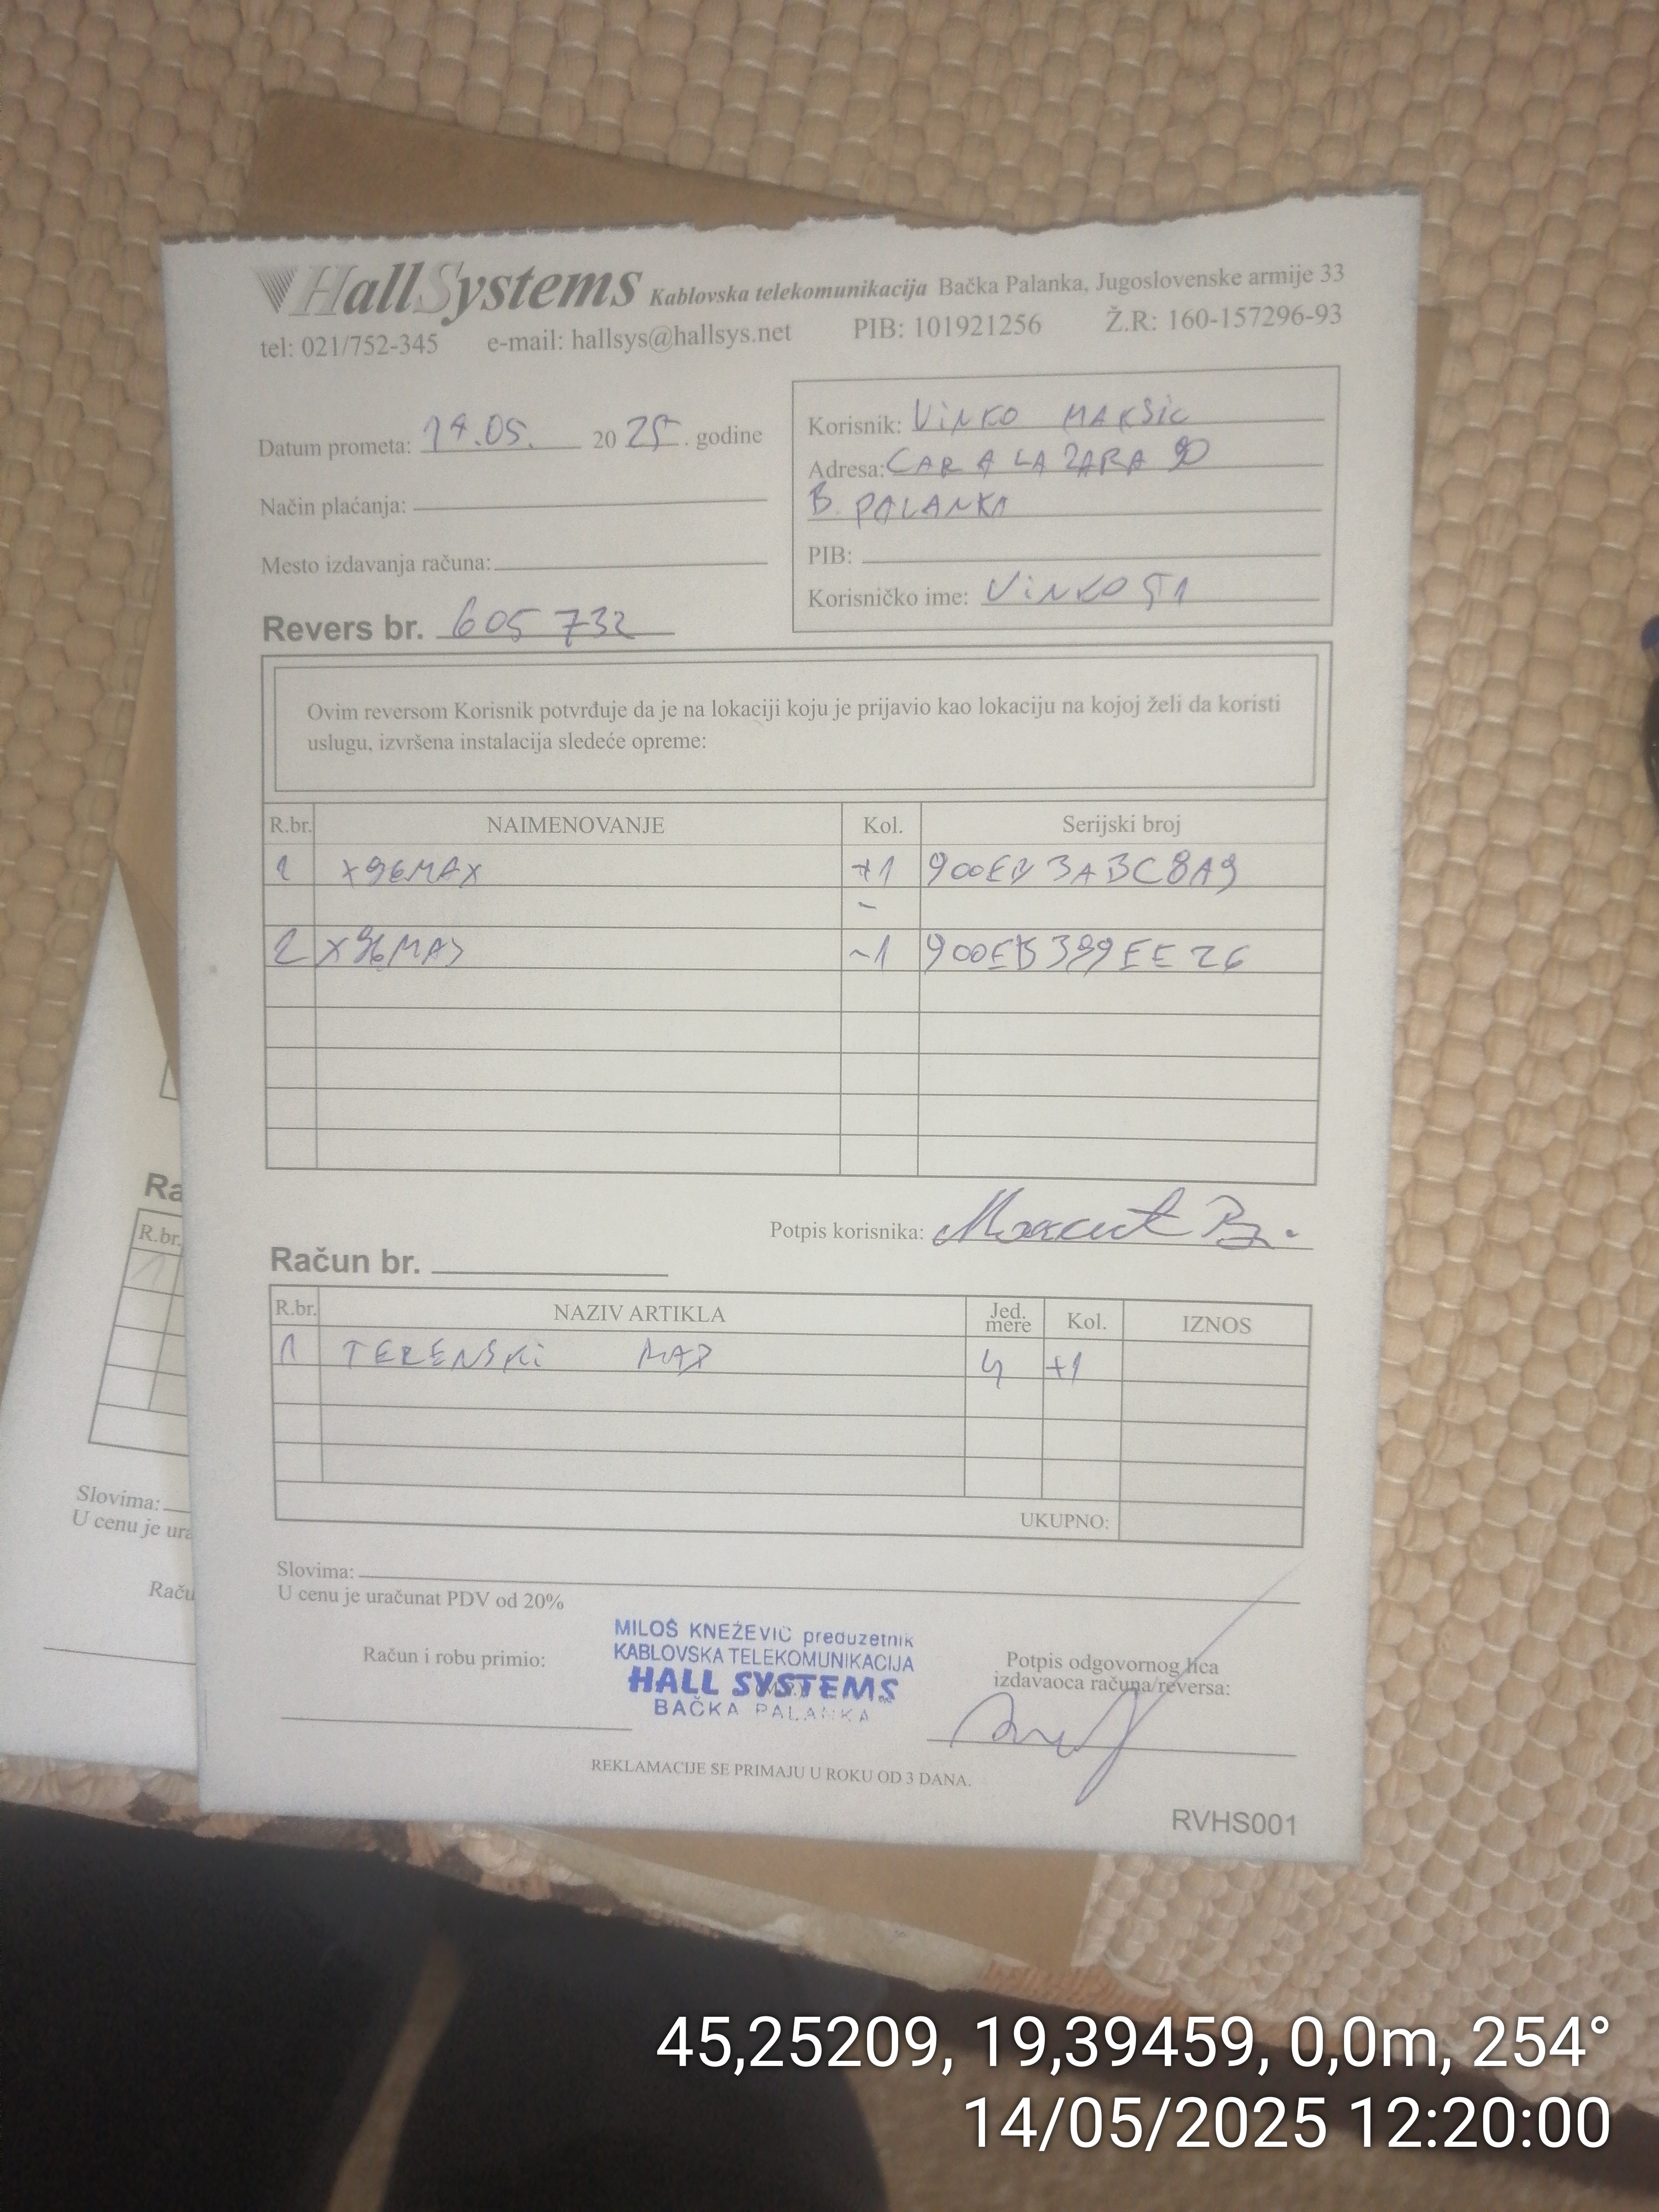 HallSystems Kablovska telekomunikacija Bačka Palanka, Jugoslovenske armije 33
tel: 021/752-345 e-mail: hallsys@hallsys.net PIB: 101921256 Ž.R: 160-157296-93
Datum prometa: 14.05. 20 25. godine
Način plaćanja:
Mesto izdavanja računa:
Revers br. 605 732
Korisnik: ViNKO MAKSiC
Adresa: CARA LAZARA 90
B. PALANKA
PIB:
Korisničko ime: ViNKO51
Ovim reversom Korisnik potvrđuje da je na lokaciji koju je prijavio kao lokaciju na kojoj želi da koristi
uslugu, izvršena instalacija sledeće opreme:
R.br. NAIMENOVANJE Kol. Serijski broj
1 X96MAX +1 900EB3ABC8A9
-
2 X96MAX -1 900EB399EE26
Potpis korisnika:
Račun br.
R.br. NAZIV ARTIKLA Jed. mere Kol. IZNOS
1 TERENSKi RAD +1
UKUPNO:
Slovima:
U cenu je uračunat PDV od 20%
Račun i robu primio:
MILOŠ KNEŽEVIĆ preduzetnik
KABLOVSKA TELEKOMUNIKACIJA
HALL SYSTEMS
BAČKA PALANKA
Potpis odgovornog lica
izdavaoca računa/reversa:
REKLAMACIJE SE PRIMAJU U ROKU OD 3 DANA.
RVHS001
Ra
R.br.
1
Slovima:
U cenu je ura
Raču
45,25209, 19,39459, 0,0m, 254°
14/05/2025 12:20:00